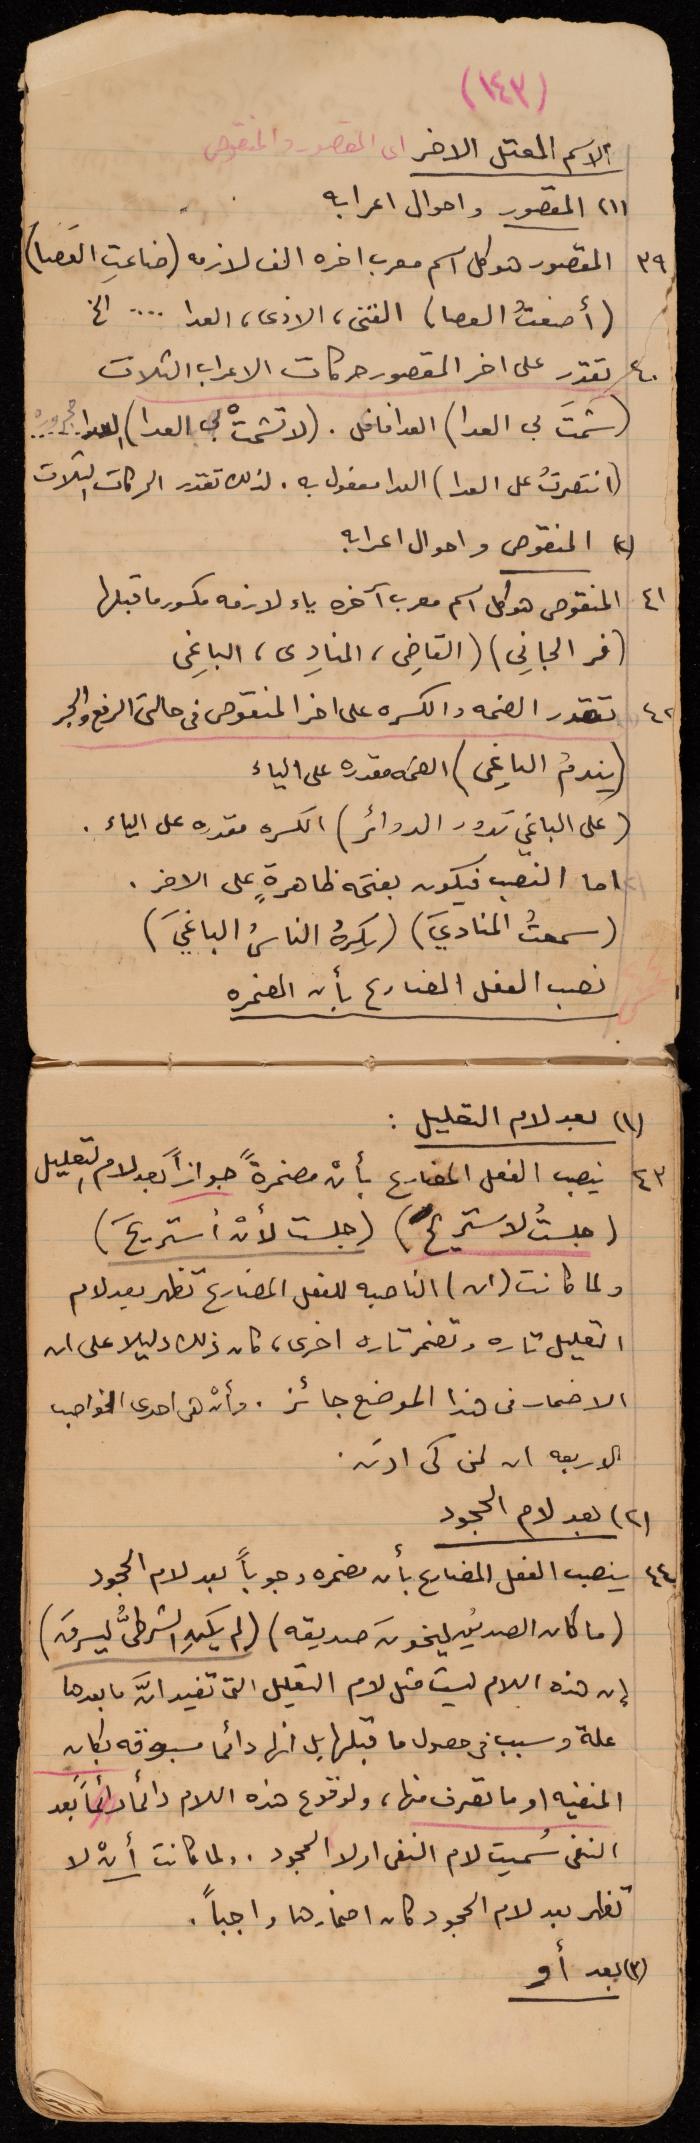 (١٤٣)
الاسم المعتل الاخر اى المقصور والمنقوص
(١) المقصور واحوال اعرابه
٣٩ المقصور هو كل اسم معرب اخره الف لازمه (ضاعتِ العَصا)
(أضعتُ العصا) الفتى، الاذى، العدا .... الخ
٤٠ تقدّر على اخر المقصور حركات الاعراب الثلاث
(شمتَ بي العدا) العدا فاعل . (لا تشمتْ بي العدا) العدا
(انتصرتُ على العدا) العدا مفعول به . لذلك تقدر الحركات الثلاث
(٢) المنقوص واحوال اعرابه
٤١ المنقوص هو كل اسم معرب آخره ياء لازمه مكسور ما قبلها
(فر الجانِي) (القاضِى، المنادِى، الباغِى
٤٢ تقدر الضمه والكسره على اخر المنقوص فى حالتى الرفع والجر
(يندمُ الباغِى) الضمه مقدره على الياء
(على الباغي تدور الدوائر) الكسره مقدره على الياء .
اما النصب فيكون بفتحه ظاهرةٍ على الاخر .
(سمعتُ المناديَ) (يكرهُ الناسُ الباغيَ)
نصب الفعل المضارع بأن المضمره
(١) بعد لام التعليل :
٤٣ ينصب الفعل المضارع بأنْ مضمرةً جوازاً بعد لام التعليل
(جلستُ لاستريح) (جلست لأنْ أستريحَ)
ولما كانت (ان) الناصبه للفعل المضارع تظهر بعد لام
التعليل تاره وتضمر تاره اخرى، كان ذلك دليلا على ان
الاضمار فى هذا الموضع جائز . وأنْ هى احدى النواصب
الاربعه ان لن كى اذن .
(٢) بعد لام الجحود
٤٤ ينصب الفعل المضارع بأن مضمره وجوباً بعد لام الجحود
(ما كان الصديق ليخونَ صديقه) (لم يكنِ الشرطىُّ ليسرقَ)
إن هذه اللام ليست مثل لام التعليل التى تفيد انَّ ما بعدها
علة وسبب فى حصول ما قبلها بل انها دائما مسبوقه بكان
المنفيه او ما تصرف منها، ولوقوع هذه اللام دائما دائماً بعد
النفى سُميت لام النفى او لا الجحود . ولما كانت أنْ لا
تظهر بعد لام الجحود كان اضمارها واجباً .
(٣) بعد أو